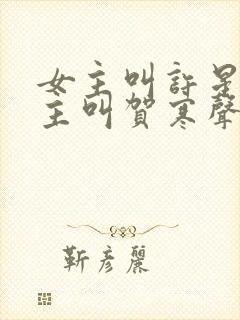 女主叫許星
主叫賀寒聲
靳彥麗